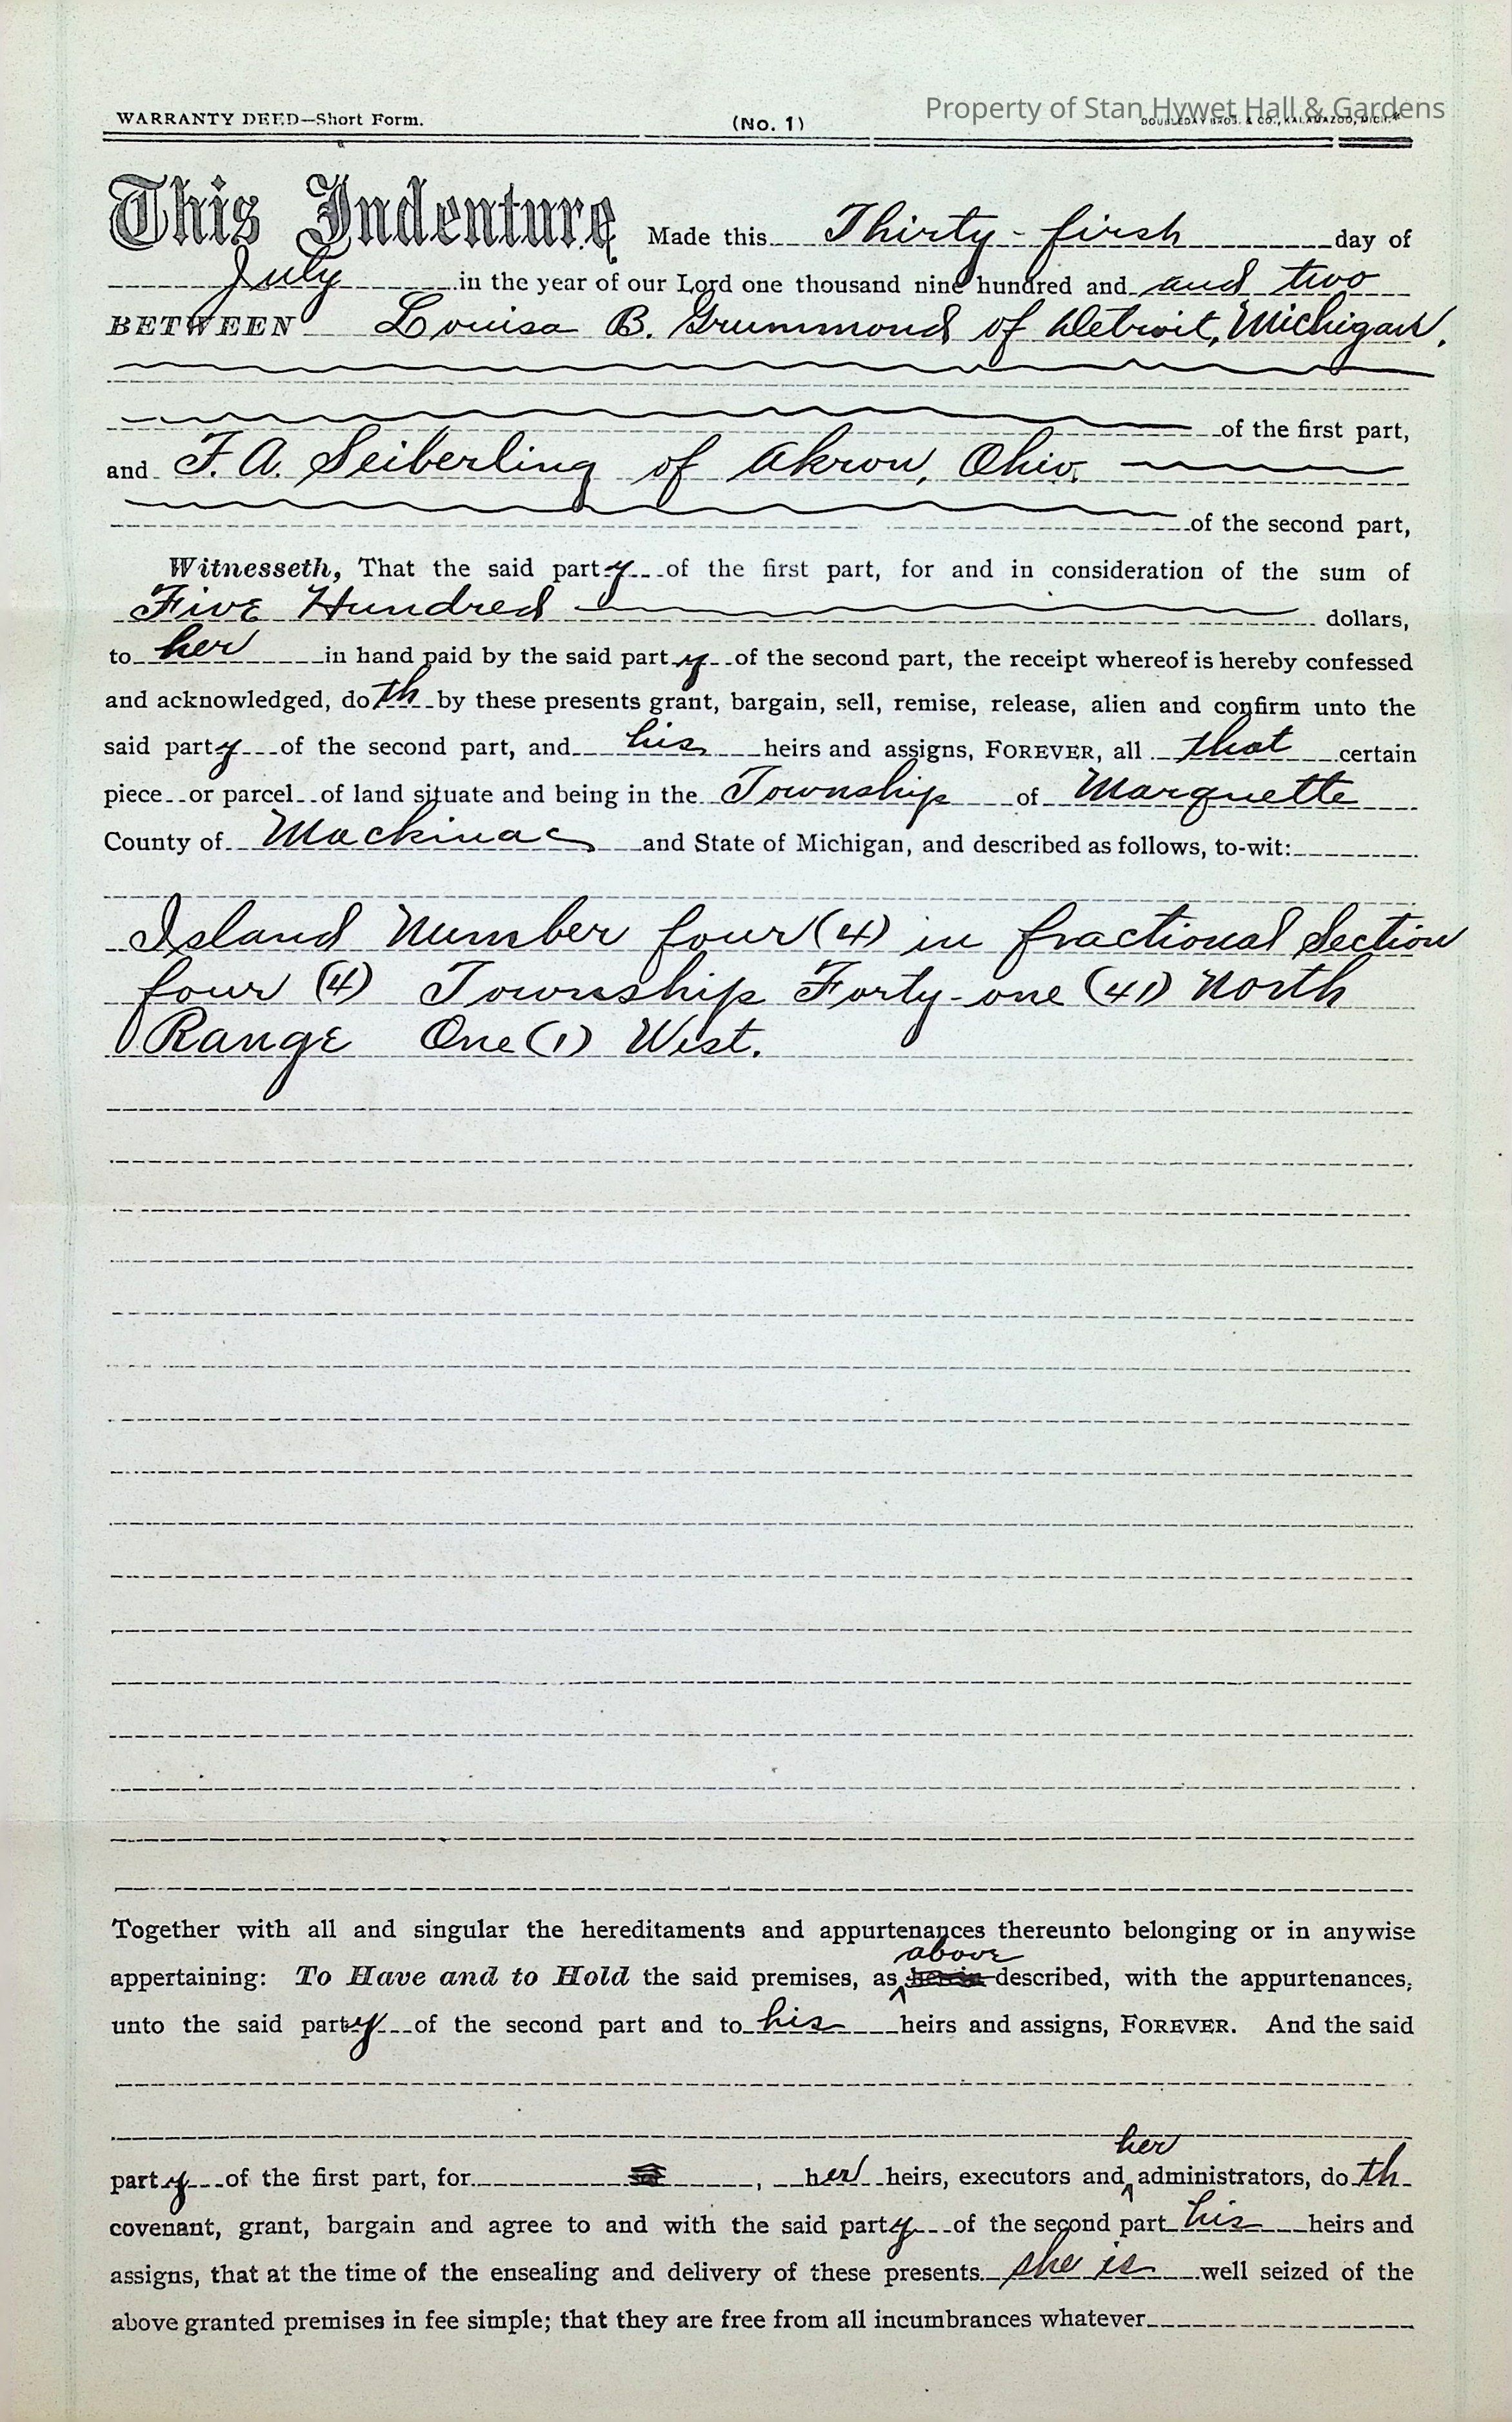 Property of Stan Hywet Hall & Gardens
WARRANTY DEED—Short Form. (No. 1) DOUBLEDAY BROS. & CO., KALAMAZOO, MICH.
This Indenture Made this Thirty-first day of
July in the year of our Lord one thousand nine hundred and and two
BETWEEN Louisa B. Grummond of Detroit, Michigan.
of the first part,
and F. A. Seiberling of Akron, Ohio,
of the second part,
Witnesseth, That the said party of the first part, for and in consideration of the sum of
Five Hundred dollars,
to her in hand paid by the said party of the second part, the receipt whereof is hereby confessed
and acknowledged, doth by these presents grant, bargain, sell, remise, release, alien and confirm unto the
said party of the second part, and his heirs and assigns, FOREVER, all that certain
piece or parcel of land situate and being in the Township of Marquette
County of Mackinac and State of Michigan, and described as follows, to-wit:
Island Number four (4) in fractional Section
four (4) Township Forty-one (41) North
Range One (1) West.
Together with all and singular the hereditaments and appurtenances thereunto belonging or in anywise
above
appertaining: To Have and to Hold the said premises, as herein described, with the appurtenances,
unto the said party of the second part and to his heirs and assigns, FOREVER. And the said
her
party of the first part, for , her heirs, executors and administrators, doth
covenant, grant, bargain and agree to and with the said party of the second part his heirs and
assigns, that at the time of the ensealing and delivery of these presents she is well seized of the
above granted premises in fee simple; that they are free from all incumbrances whatever